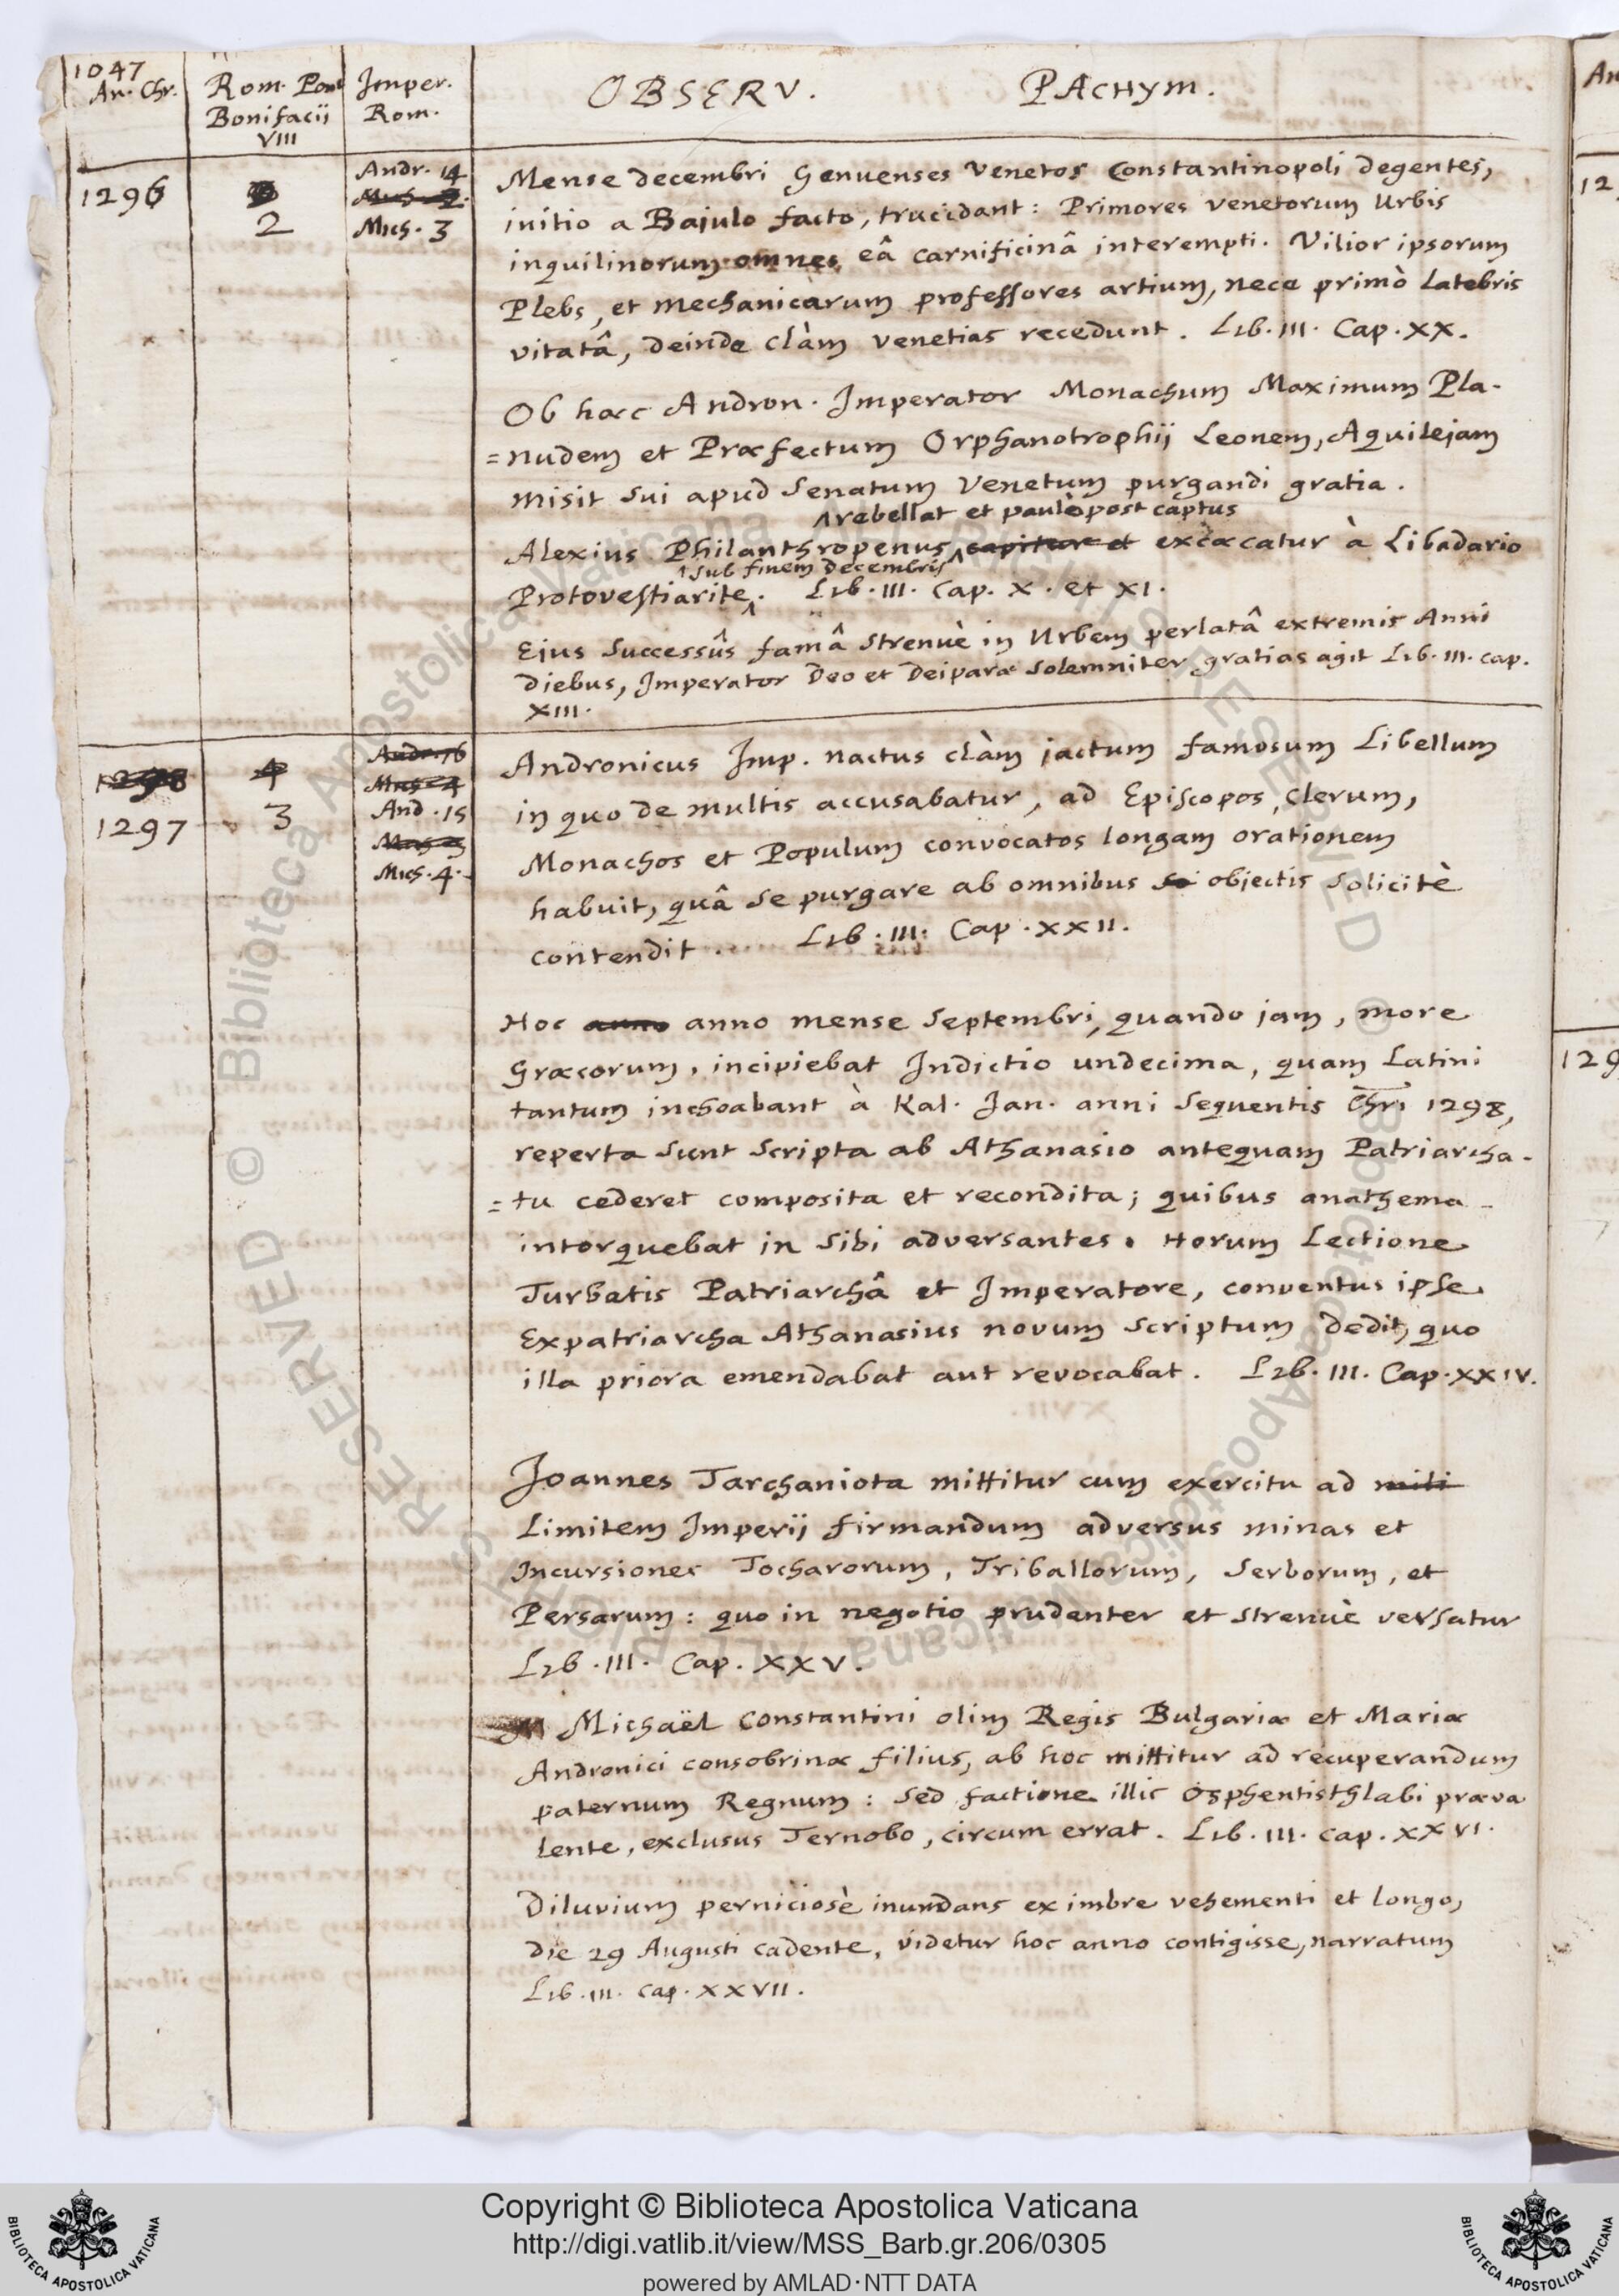 1047
An. Chr.
Rom. Pont
Bonifacii
VIII
Imper.
Rom.
OBSERV. PACHYM.
1296
2
Andr. 14
Mich. 3
Mense decembri Genuenses Venetos Constantinopoli degentes,
initio a Bajulo facto, trucidant: Primores venetorum Urbis
inquilinorum omnes eâ carnificinâ interempti. Vilior ipsorum
Plebs, et mechanicarum professores artium, nece primò latebris
vitatâ, deinde clàm venetias recedunt. Lib. III. Cap. XX.
Ob hæc Andron. Imperator Monachum Maximum Pla-
=nudem et Præfectum Orphanotrophij Leonem, Aquilejam
misit sui apud Senatum Venetum purgandi gratia.
rebellat et paulò post captus
Alexius Philanthropenus capitur et excæcatur à Libadario
sub finem decembris
Protovestiarite. Lib. III. Cap. X. et XI.
Ejus successûs famâ strenuè in Urbem perlatâ extremis Anni
diebus, Imperator Deo et Deiparæ solemniter gratias agit Lib. III. cap.
XIII.
1298
1297
4
3
Andr. 16
Mich. 4
And. 15
Mich. 4.
Andronicus Imp. nactus clàm jactum famosum Libellum
in quo de multis accusabatur, ad Episcopos, clerum,
Monachos et Populum convocatos longam orationem
habuit, quâ se purgare ab omnibus objectis solicitè
contendit. Lib. III. Cap. XXII.
Hoc anno anno mense Septembri, quando jam, more
Græcorum, incipiebat Indictio undecima, quam Latini
tantum inchoabant à Kal. Jan. anni sequentis Chri 1298,
reperta sunt scripta ab Athanasio antequam Patriarcha-
=tu cederet composita et recondita; quibus anathema
intorquebat in sibi adversantes. Horum Lectione
Turbatis Patriarchâ et Imperatore, conventus ipse
Expatriarcha Athanasius novum scriptum dedit, quo
illa priora emendabat aut revocabat. Lib. III. Cap. XXIV.
Joannes Tarchaniota mittitur cum exercitu ad miti
Limitem Imperij firmandum adversus minas et
Incursiones Tocharorum, Triballorum, Serborum, et
Persarum: quo in negotio prudenter et strenuè versatur
Lib. III. Cap. XXV.
Michaël Constantini olim Regis Bulgariæ et Mariæ
Andronici consobrinæ filius, ab hoc mittitur ad recuperandum
paternum Regnum: sed factione illic Osphentisthlabi præva
lente, exclusus Ternobo, circum errat. Lib. III. cap. XXVI.
Diluvium perniciosè inundans ex imbre vehementi et longo,
die 29 Augusti cadente, videtur hoc anno contigisse, narratum
Lib. III. cap. XXVII.
An
12
129
© Biblioteca Apostolica Vaticana
ALL RIGHTS RESERVED
Copyright © Biblioteca Apostolica Vaticana
http://digi.vatlib.it/view/MSS_Barb.gr.206/0305
powered by AMLAD·NTT DATA
BIBLIOTECA APOSTOLICA VATICANA
BIBLIOTECA APOSTOLICA VATICANA